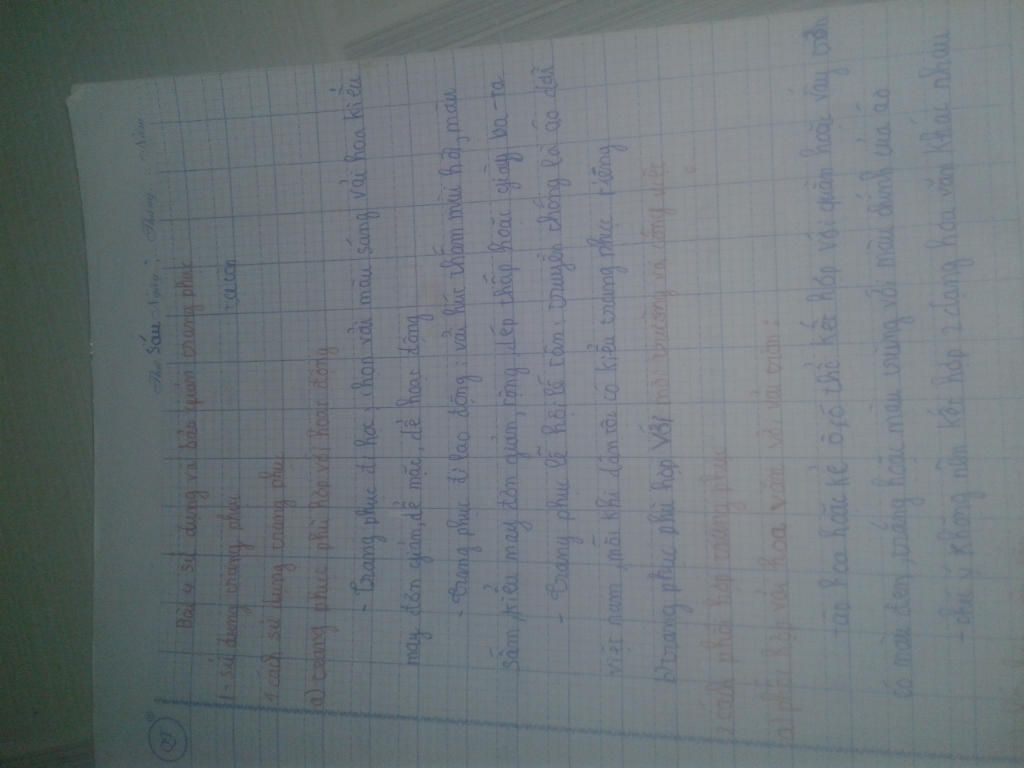 Thứ Sáu Ngày : Tháng Năm
Bài 4 sử dụng và bảo quản trang phục
I - sử dụng trang phục
1 cách sử dụng trang phục
a) trang phục phù hợp với hoạt động
- Trang phục đi học: chọn vải màu sáng vải hoa kiểu
may đơn giản, dễ mặc, dễ hoạt động
- Trang phục đi lao động: vải hút thấm mồ hôi, màu
sẫm, kiểu may đơn giản, rộng, dép thấp hoặc giày ba-ta
- Trang phục lễ hội lễ tân: truyền thống là áo dài
việt nam, mỗi khi dân tộc có kiểu trang phục riêng
b) Trang phục phù hợp với môi trường và công việc
2 cách phối hợp trang phục
a) phối hợp vải hoa văn với vải trơn:
- áo hoa hoặc kẻ ô, có thể kết hợp với quần hoặc váy trơn
có màu đen, trắng hoặc màu trùng với màu chính của áo
- chú ý không nên kết hợp 2 dạng hoa văn khác nhau